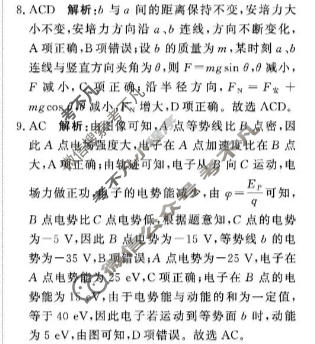 8. ACD 解析:b与a间的距离保持不变,安培力大
小不变,安培力方向沿a、b连线,方向不断变化,
A项正确,B项错误;设b的质量为m,某时刻a、b
连线与竖直方向夹角为θ,则F=mgsin θ,θ减小,
F减小,C项正确;沿半径方向,F_N=F_安+
mgcos θ,θ减小,F_N增大,D项正确。故选ACD。
9. AC 解析:由图像可知,A点等势线比B点密,因
此A点电场强度大,电子在A点加速度比在B点
大,A项正确;由轨迹可知,电子从B向C运动,电
场力做正功,电子的电势能减少,由φ=E_P/q可知,
B点电势比C点电势低,根据题意知,C点的电势
为-5 V,因此B点电势为-15 V,等势线b的电
势为-35 V,B项错误;A点电势为-25 V,电子在
A点电势能为25 eV,C项正确;电子在B点的电
势能为15 eV,由于电势能与动能的和为一定值,
等于40 eV,因此电子若运动到等势面b时,动能
为5 eV,由图可知,D项错误。故选AC。